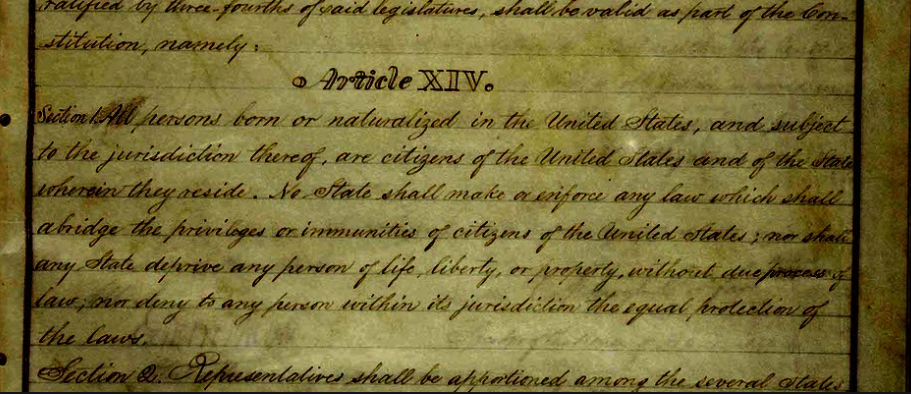 ratified by three-fourths of said legislatures, shall be valid as part of the Con-
stitution, namely:
Article XIV.
Section 1. All persons born or naturalized in the United States, and subject
to the jurisdiction thereof, are citizens of the United States and of the State
wherein they reside. No State shall make or enforce any law which shall
abridge the privileges or immunities of citizens of the United States; nor shall
any State deprive any person of life, liberty, or property, without due process of
law; nor deny to any person within its jurisdiction the equal protection of
the laws.
Section 2. Representatives shall be apportioned among the several States